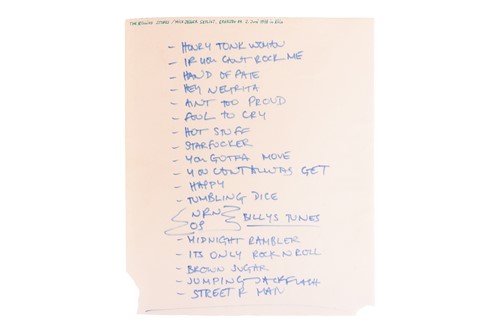 THE ROLLING STONES / MICK JAGGER SETLIST,
- HONKY TONK WOMAN
- IF YOU CANT ROCK ME
- HAND OF FATE
- HEY NEGRITA
- AINT TOO PROUD
- FOOL TO CRY
- HOT STUFF
- STARFUCKER
- YOU GOTTA MOVE
- YOU CANT ALWAYS GET
- HAPPY
- TUMBLING DICE
NRN
OS BILLYS TUNES
- MIDNIGHT RAMBLER
- ITS ONLY ROCK N ROLL
- BROWN SUGAR
- JUMPING JACK FLASH
- STREET F MAN